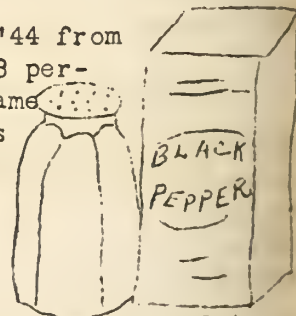 '44 from
8 per-
ame
s
BLACK
PEPPER